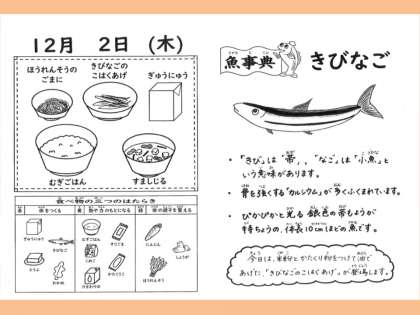 12月 2日 (木)
ほうれんそうの
ごまに
きびなごの
こはくあげ
ぎゅうにゅう
むぎごはん
すましじる
食べ物の三つのはたらき
体をつくる
体の調子を整える
ぎゅうにゅう
きびなご
とうふ
わかめ
むぎごはん
さとう
ごま
かたくりこ
にんじん
しょうが
ほうれんそう
魚事典
きびなご
・「きび」は「帯」、「なご」は「小魚」と
いう意味があります。
・骨を強くする「カルシウム」が多くふくまれています。
・ぴかぴかと光る銀色の帯もようが
特ちょうの、体長10cmほどの魚です。
今日は、米粉とかたくり粉をつけて油で
あげた、「きびなごのこはくあげ」が登場します。